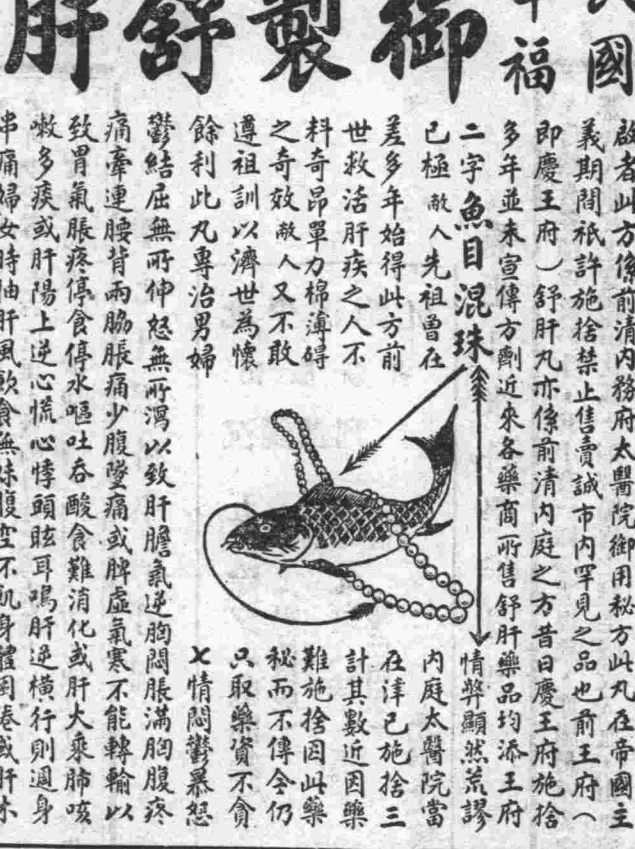 御製舒肝
民國
福
啟者此方係前清内務府太醫院御用秘方此丸在帝國主
義期間祇許施捨禁止售賣誠市内罕見之品也前王府（
即慶王府）舒肝丸亦係前清内庭之方昔日慶王府施捨
多年並未宣傳方劑近來各藥商所售舒肝藥品均添王府
二字魚目混珠情弊顯然荒謬
已極敝人先祖曾在内庭太醫院當
差多年始得此方前在津已施捨三
世救活肝疾之人不計其數近因藥
料奇昂單力棉薄碍難施捨因此藥
之奇效敝人又不敢秘而不傳仝仍
遵祖訓以濟世為懷只取藥資不貪
餘利此丸專治男婦七情悶鬱暴怒
鬱結屈無所伸怒無所瀉以致肝膽氣逆胸悶脹滿胸腹疼
痛牽連腰背兩脇脹痛少腹墜痛或脾虛氣寒不能轉輸以
致胃氣脹疼停食停水嘔吐吞酸食難消化或肝大乘肺咳
嗽多痰或肝陽上逆心慌心悸頭眩耳鳴肝逆横行則週身
串痛婦女時抽肝風飲食無味腹空不飢身體困倦或肝木